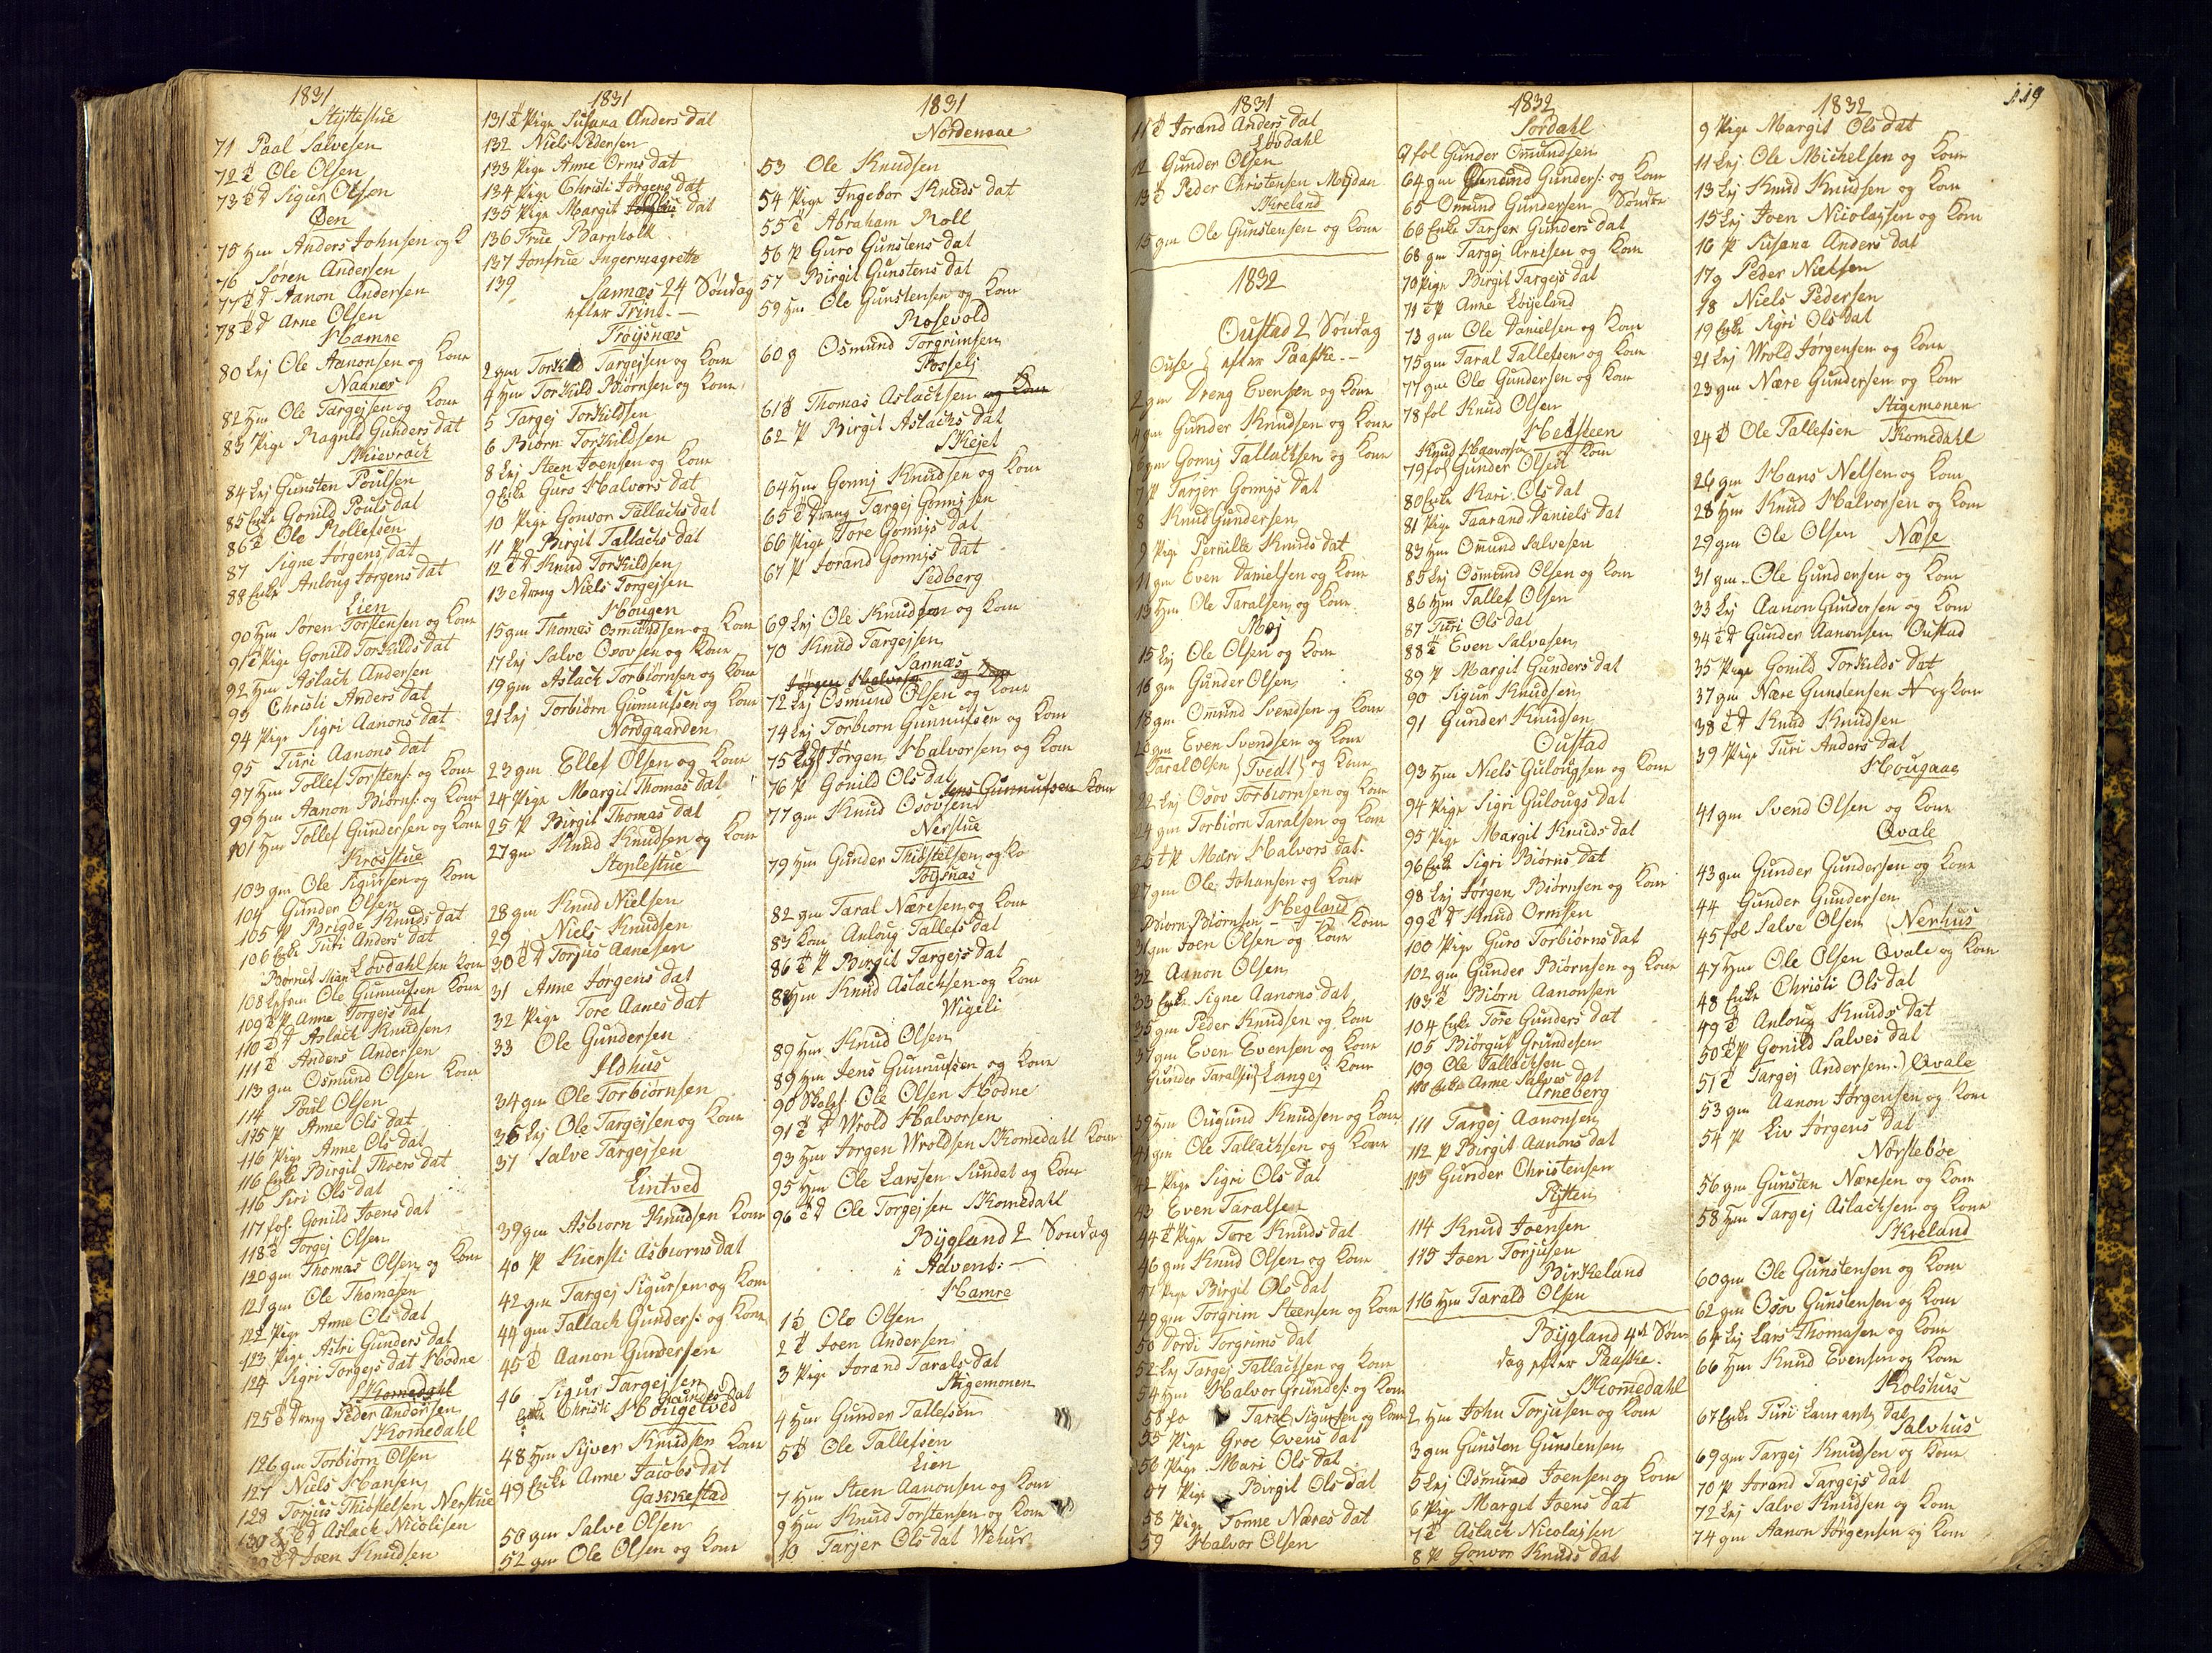 1831
Stÿttestue
71 Paal Salvesen
72 Ole Olsen
73 Sigur Olsen
Øen
75 Hm Anders Johnsen og K
76 Søren Andersen
77 Aanon Andersen
78 Arne Olsen
Hamre
80 Lej Ole Aanonsen og Kone
Naanes
82 Hm Ole Targejsen og Kone
83 Pige Ragnild Gunders dat
Skievrack
84 Lej Gunsten Poulsen
85 Enke Gonild Pouls dat
86 Ole Rollefsen
87 Signe Jørgens dat
88 Enke Anloug Jørgens dat
Lien
90 Hm Søren Torstensen og Kone
91 Pige Gonild Torkilds dat
92 Hm Aslach Andersen
93 Christi Anders dat
94 Pige Sigri Aanons dat
95 Turi Aanons dat
97 Hm Tollef Torstens: og Kone
99 Hm Aanon Biørns: og Kone
101 Hm Tollef Gundersen og Kone
Krosstue
103 gm Ole Sigursen og Kone
104 Gunder Olsen
105 P Brigde Knuds dat
106 Enke Turi Anders dat
Løvdahl
108 Ole Gunnufsen Kone
109 P Anne Torgejs dat
110 Aslach Knudsen
111 Anders Andersen
113 gm Osmund Olsen Kone
114 Poul Olsen
115 P Anne Ols dat
116 Pige Anne Ols dat
116 Enke Birgit Thoers dat
116 Siri Ols dat
117 fol: Gonild Joens dat
118 Torgej Olsen
120 gm Thomas Olsen og Kone
121 gm Ole Thomasen
122 Pige Anne Ols dat
123 Pige Astri Gunders dat
124 Sigri Torgejs dat Hodne
Skomedahl
125 Dreng Peder Andersen
Skomedahl
126 gm Torbiørn Olsen
127 Niels Hansen
128 Torjus Thiostelsen Nerstue
130 Aslach Nicolisen
130 Joen Knudsen
1831
131 Pige Susana Anders dat
132 Niels Pedersen
133 Pige Anne Orms dat
134 Pige Christi Jørgens dat
135 Pige Margit dat
136 Frue Barnholt
137 Jomfrue Ingermagrette
139 Sannæs 24 Søndag
efter Trint.
Frøysnæs
2 gm Torkild Targejsen og Kone
4 Hm Torkild Biørnsen og Kone
5 Targej Torkildsen
6 Biørn Torkildsen
8 Lej Steen Joensen og Kone
9 Enke Guro Halvors dat
10 Pige Gonvor Tallachs dat
11 P Birgit Tallachs dat
12 Knud Torkildsen
13 Dreng Niels Torgejsen
Hougen
15 gm Thomas Osmundsen og Kone
17 Lej Salve Osovsen og Kone
19 gm Aslach Torbiørnsen og Kone
21 Lej Torbiørn Gunnufsen og Kone
Nordgaarden
23 gm Ellef Olsen og Kone
24 Pige Margit Thomas dat
25 P Birgit Thomas dat
27 gm Knud Knudsen og Kone
Steplestue
28 gm Knud Nielsen
29 Niels Knudsen
30 Torjus Aanesen
31 Anne Jørgens dat
32 Pige Tore Aanes dat
33 Ole Gundersen
Ildhus
34 gm Ole Torbiørnsen
36 Lej Ole Targejsen og Kone
37 Salve Targejsen
Lintved
39 gm Asbiørn Knudsen Kone
40 P Kiersti Asbiørns dat
42 gm Targej Sigursen og Kone
44 gm Tallach Gunders: og Kone
45 Aanon Gundersen
46 Sigur Targejsen
Enke Christi Gunders dat
Hougetved
48 Hm Syver Knudsen Kone
49 Enke Anne Jacobs dat
Gakkestad
50 gm Salve Olsen
52 gm Ole Olsen og Kone
1831
Nordenaae
53 Ole Knudsen
54 Pige Ingebor Knuds dat
55 Abraham Roll
56 P Guro Gunstens dat
57 Birgit Gunstens dat
59 Hm Ole Gunstensen og Kone
Rosevold
60 g Osmund Torgrimsen
Rosselj
61 Thomas Aslachsen og Kone
62 P Birgit Aslachs dat
Skejet
64 Hm Gonnij Knudsen og Kone
65 Dreng Targej Gonnijsen
66 Pige Tore Gonnijs dat
67 P Jorand Gonnijs dat
Sedberg
69 Lej Ole Knudsen og Kone
70 Knud Targejsen
Sannæs
Jørgen Halvorsen og Kone
72 Lej Osmund Olsen og Kone
74 Lej Torbiørn Gunnufsen og Kone
75 Jørgen Halvorsen og Kone
76 P Gonild Ols dat
Jens Gunnufsen Kone
77 gm Knud Osovsen
Nerstue
79 Hm Gunder Thiostelsen og Ko
Røysnæs
82 gm Taral Næresen og Kone
83 Kone Anloug Tallefs dat
86 P Birgit Targejs dat
88 Hm Knud Aslachsen og Kone
Wigeli
89 Hm Knud Olsen
89 Hm Jens Gunnufsen og Kone
90 Skolel. Ole Olsen Hodne
91 Wrold Halvorsen
93 Hm Jørgen Wroldsen Skomedahl Kone
95 Hm Ole Larssen Sundet og Kone
96 Ole Torgejsen Skomedahl
Bÿgland 2 Søndag
i Advent:
Hamre
1 Ole Olsen
2 Joen Andersen
3 Pige Jorand Tarals dat
Stigemonen
4 Hm Gunder Tallefsen
5 Ole Tallefsen
Lien
7 Hm Steen Aanonsen og Kone
9 Hm Knud Torstensen og Kone
10 Tarjer Ols dat Wehus
119
1831
11 Jorand Anders dat
Løvdahl
12 Gunder Olsen
13 Peder Christensen Mejdan
Skreland
15 gm Ole Gunstensen og Kone
1832
Oustad 2 Søndag
Ouse efter Paaske.
2 gm Dreng Evensen og Kone
4 gm Gunder Knudsen og Kone
6 gm Gonnij Tallachsen og Kone
7 P Tarjer Gonnijs dat
8 Knud Gundersen
9 Pige Pernille Knuds dat
11 gm Even Danielsen og Kone
13 Hm Ole Taralsen og Kone
Moj
15 Lej Ole Olsen og Kone
16 gm Gunder Olsen
18 gm Omund Svendsen og Kone
20 gm Even Svendsen og Kone
Taral Olsen Tvedt og Kone
22 Lej Osov Torbiørnsen og Kone
24 gm Torbiørn Taralsen og Kone
25 P Mari Halvors dat
27 gm Ole Johansen og Kone
Hegland
Biørn Biørnsen Kone
31 gm Joen Olsen og Kone
32 Aanon Olsen
33 Enke Signe Aanons dat
35 gm Peder Knudsen og Kone
37 gm Even Evensen og Kone
Gunder Taralsen Langej Kone
39 Hm Ougund Knudsen og Kone
41 gm Ole Tallachsen og Kone
42 Pige Sigri Ols dat
43 Even Taralsen
44 Pige Tore Knuds dat
46 gm Knud Olsen og Kone
47 Pige Birgit Ols dat
49 gm Torgrim Steensen og Kone
50 Dordi Torgrims dat
52 Lej Targej Tallachsen og Kone
54 Hm Halvor Grundes: og Kone
58 fo Taral Sigursen og Kone
55 Pige Groe Evens dat
56 Pige Mari Ols dat
57 Pige Birgit Ols dat
58 Pige Tonne Næres dat
59 Halvor Olsen
1832
Sordahl
fol Gunder Omundsen
64 gm Omund Gunders: og Kone
65 Omund Gundersen Søndre
66 Enke Tarjer Gunders dat
68 gm Targej Arnesen og Kone
70 Pige Birgit Targejs dat
71 P Anne Løyeland
73 gm Ole Danielsen og Kone
75 gm Taral Tallefsen og Kone
77 gm Ole Gundersen og Kone
78 fol Knud Olsen
Helsteen
Knud Haavorsen Kone
79 fol Gunder Olsen
80 Enke Kari Ols dat
81 Pige Taarand Daniels dat
83 Hm Omund Salvesen
85 Lej Osmund Olsen og Kone
86 Hm Tallef Olsen
87 Turi Ols dat
88 Even Salvesen
89 P Margit Gunders dat
90 Sigur Knudsen
91 Gunder Knudsen
Oustad
93 Hm Niels Gulougsen og Kone
94 Pige Sigri Gulougs dat
95 Pige Margit Knuds dat
96 Enke Sigri Biørns dat
98 Lej Jørgen Biørnsen og Kone
99 Knud Ormsen
100 Pige Guro Torbiørns dat
102 gm Gunder Biørnsen og Kone
103 Biørn Aanonsen
104 Enke Tore Gunders dat
105 Biørgul Grundesen
109 Ole Tallachsen
110 Enke Anne Salves dat
Arneberg
111 Targej Aanonsen
112 P Birgit Aanons dat
113 Gunder Christensen
Rÿtten
114 Knud Joensen
115 Joen Torjusen
Birkeland
116 Hm Tarald Olsen
Bÿgland 4de Søn-
dag efter Paaske.
Skomedahl
2 Hm John Torjusen og Kone
3 gm Gunsten Gunstensen
5 Lej Osmund Joensen og Kone
6 Pige Margit Joens dat
7 Aslach Nicolajsen
8 P Gonvor Knuds dat
1832
9 Pige Margit Ols dat
11 Lej Ole Michelsen og Kone
13 Lej Knud Knudsen og Kone
15 Lej Joen Nicolajsen og Kone
16 P Susana Anders dat
17 g Peder Nielsen
18 Niels Pedersen
19 Enke Sigri Ols dat
21 Lej Wrold Jørgensen og Kone
23 gm Nære Gundersen og Kone
Stigemonen
24 Ole Tallefsen Skomedahl
26 gm Hans Nelsen og Kone
28 Hm Knud Halvorsen og Kone
29 gm Ole Olsen Næse
31 gm Ole Gundersen og Kone
33 Lej Aanon Gundersen og Kone
34 Gunder Aanonsen Oustad
35 Pige Gonild Torkilds dat
37 gm Nære Gunstensen N og Kone
38 Knud Knudsen
39 Pige Turi Anders dat
Hougaas
41 gm Svend Olsen og Kone
Qvale
43 gm Gunder Gundersen og Kone
44 Gunder Gundersen
45 fol Salve Olsen Nerhus
47 Hm Ole Olsen Qvale og Kone
48 Enke Christi Ols dat
49 Anloug Knuds dat
50 P Gonild Salves dat
51 Targej Andersen Qvale
53 gm Aanon Jørgensen og Kone
54 P Liv Jørgens dat
Nørstebøe
56 gm Gunsten Næresen og Kone
58 Hm Targej Aslachsen og Kone
Skreland
60 gm Ole Gunstensen og Kone
62 gm Osov Gunstensen og Kone
64 Lej Lars Thomasen og Kone
66 Hm Knud Evensen og Kone
Kolshus
67 Enke Turi Laurants dat
Salvhus
69 gm Targej Knudsen og Kone
70 P Jorand Targejs dat
72 Lej Salve Knudsen og Kone
74 gm Aanon Jørgensen og Kone